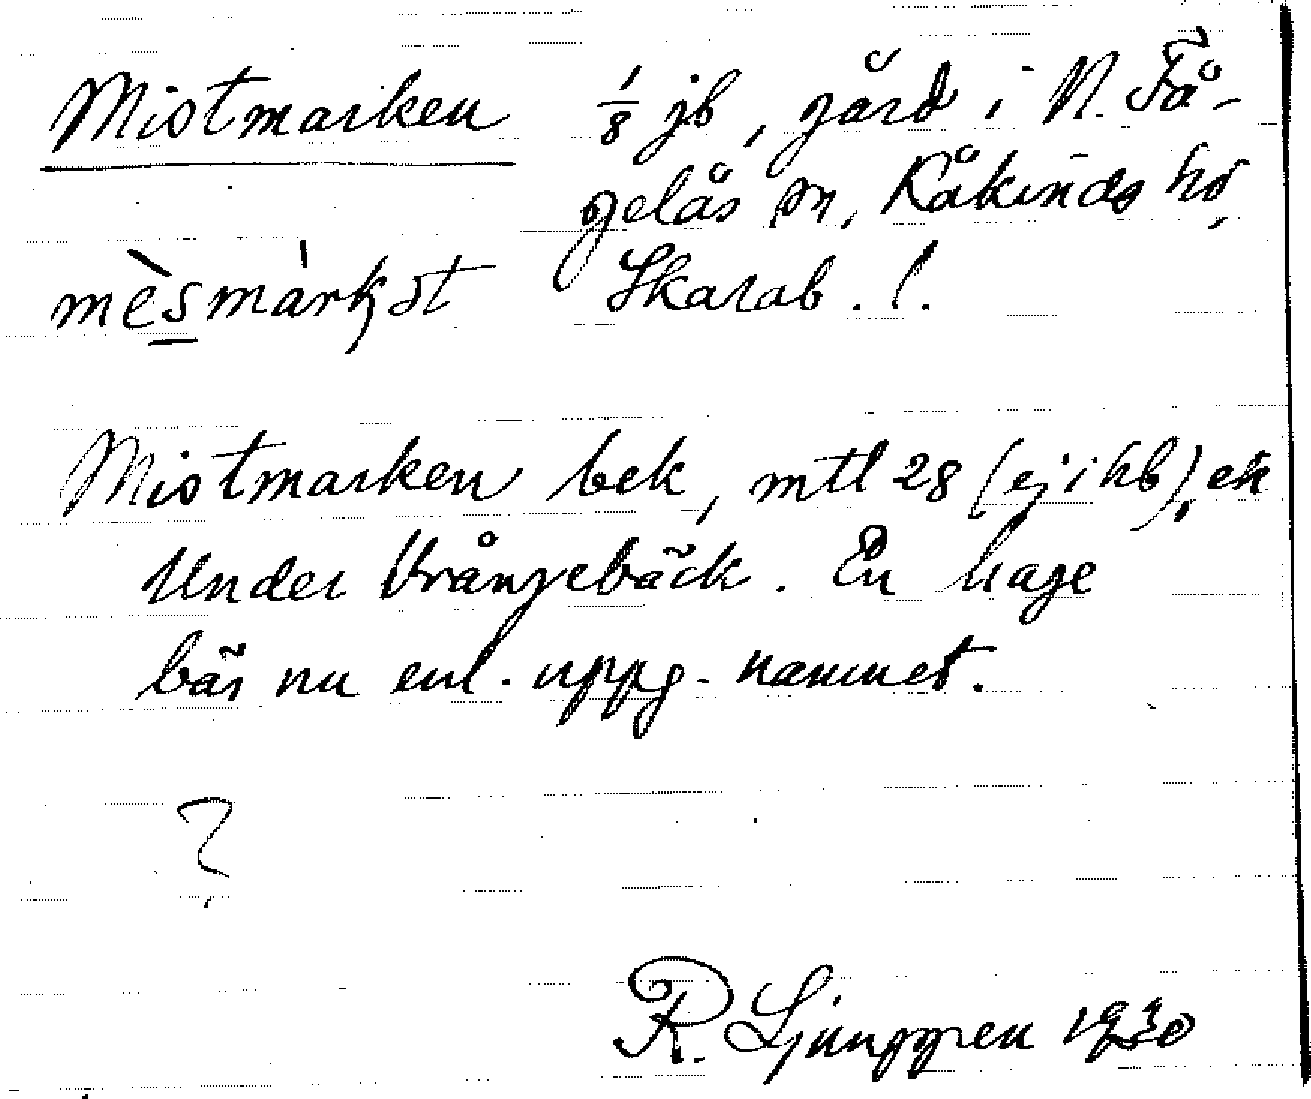 Mistmarken 1/8 jb, gård i N. Få-
gelås sn, Kåkinds hd,
mèsmàrkət Skarab. l.
Mistmarken bek, mtl 28 (ej i hb), ek
Under Vrångebäck. En hage
bär nu enl. uppg. namnet.
?
R. Ljunggren 1930